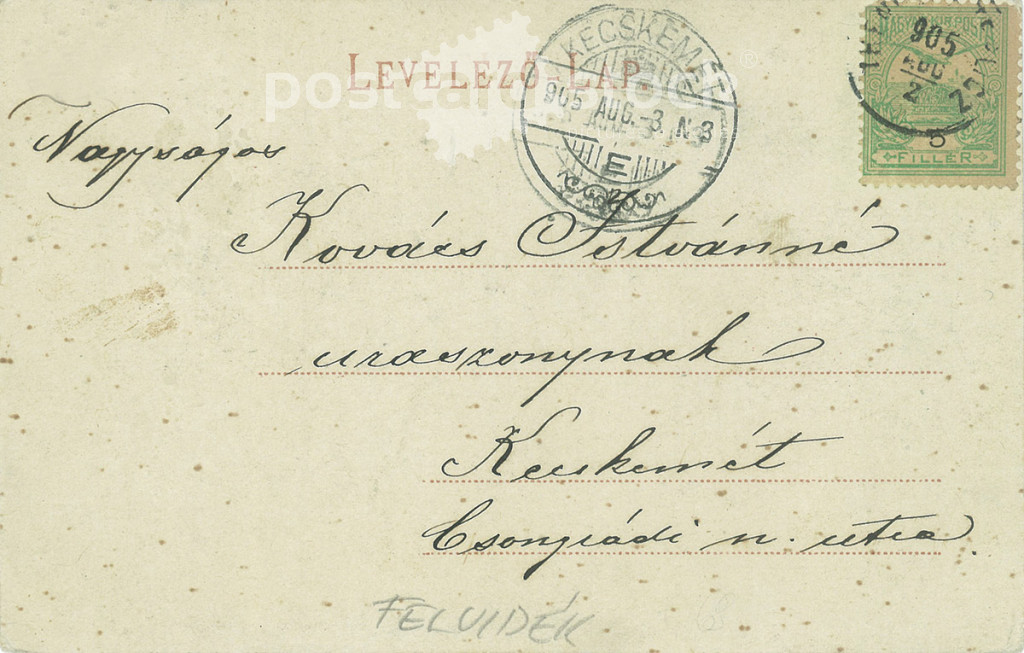 LEVELEZŐ-LAP.
KECSKEMÉT
905 AUG. -3. N 3
E
MAGYAR KIR. POSTA
905
AUG
2
5
FILLÉR
Nagyságos
Kovács Istvánné
uraszonynak
Kecskemét
Csongrádi n. utca.
FELVIDÉK